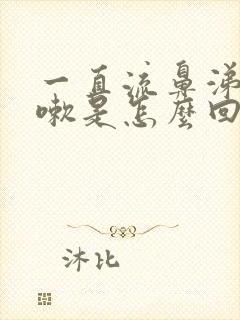 一直流鼻涕
嗽是怎麼回
沐比